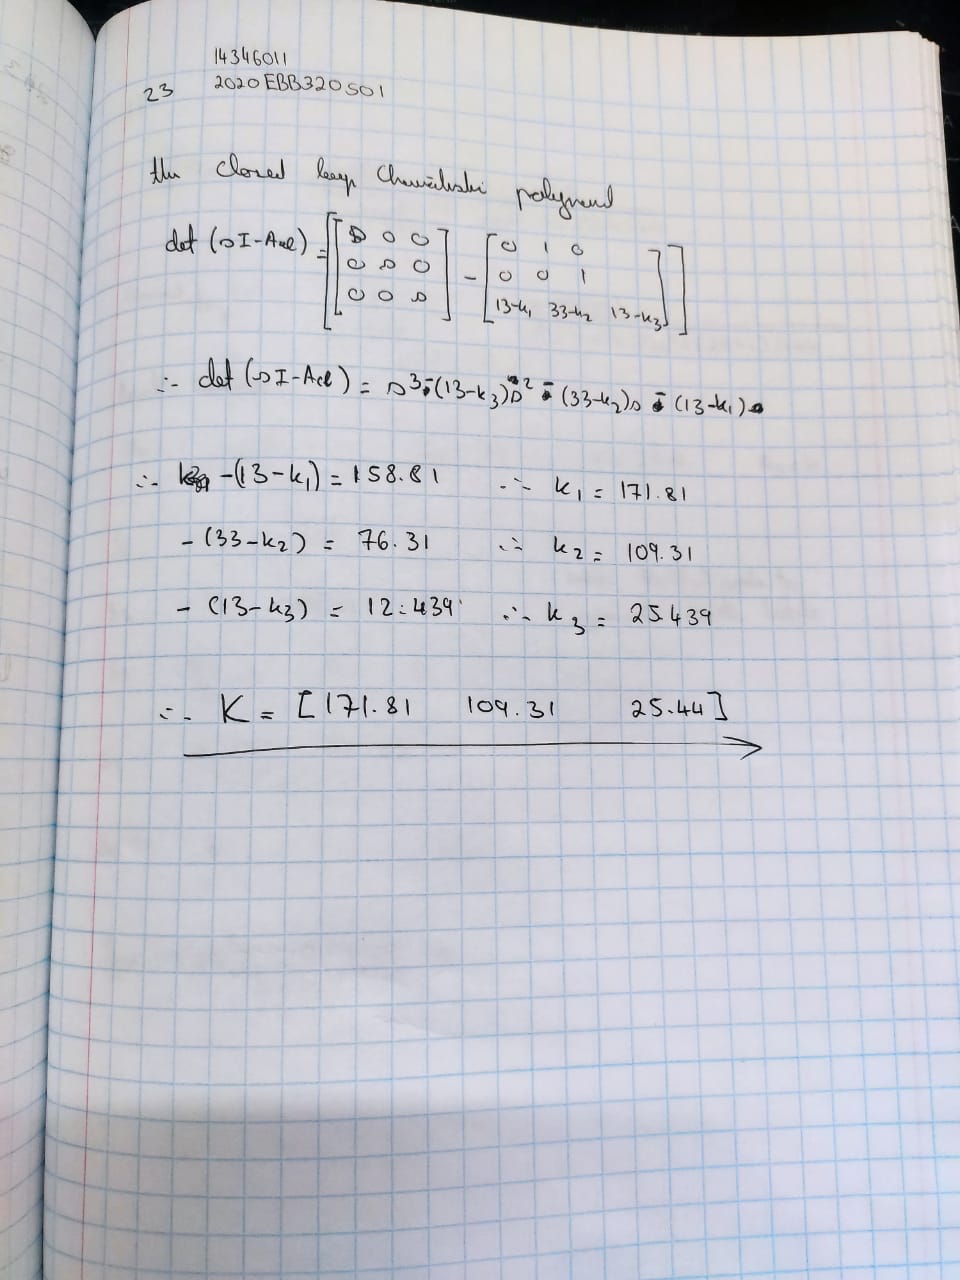 14346011
23 2020EBB320S01
the closed loop characteristic polynomial
det (sI-Acl) = [[s 0 0 0 s 0 0 0 s] - [0 1 0 0 0 1 13-k₁ 33-k₂ 13-k₃]]
∴ det (sI-Acl) = s³-(13-k₃)s² - (33-k₂)s - (13-k₁)
∴ -(13-k₁) = 158.81 ∴ k₁ = 171.81
-(33-k₂) = 76.31 ∴ k₂ = 109.31
-(13-k₃) = 12.439 ∴ k₃ = 25.439
∴ K = [171.81 109.31 25.44]